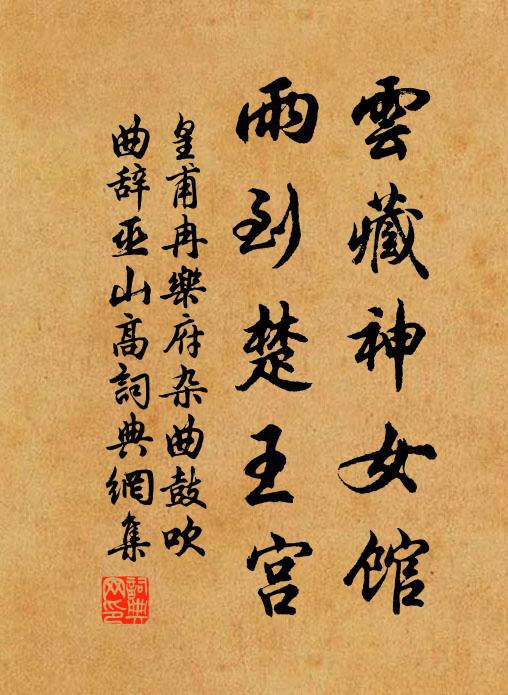 雲藏神女館
雨到楚王宫
皇甫冉樂府杂曲鼓吹
曲辞巫山高詞典網集